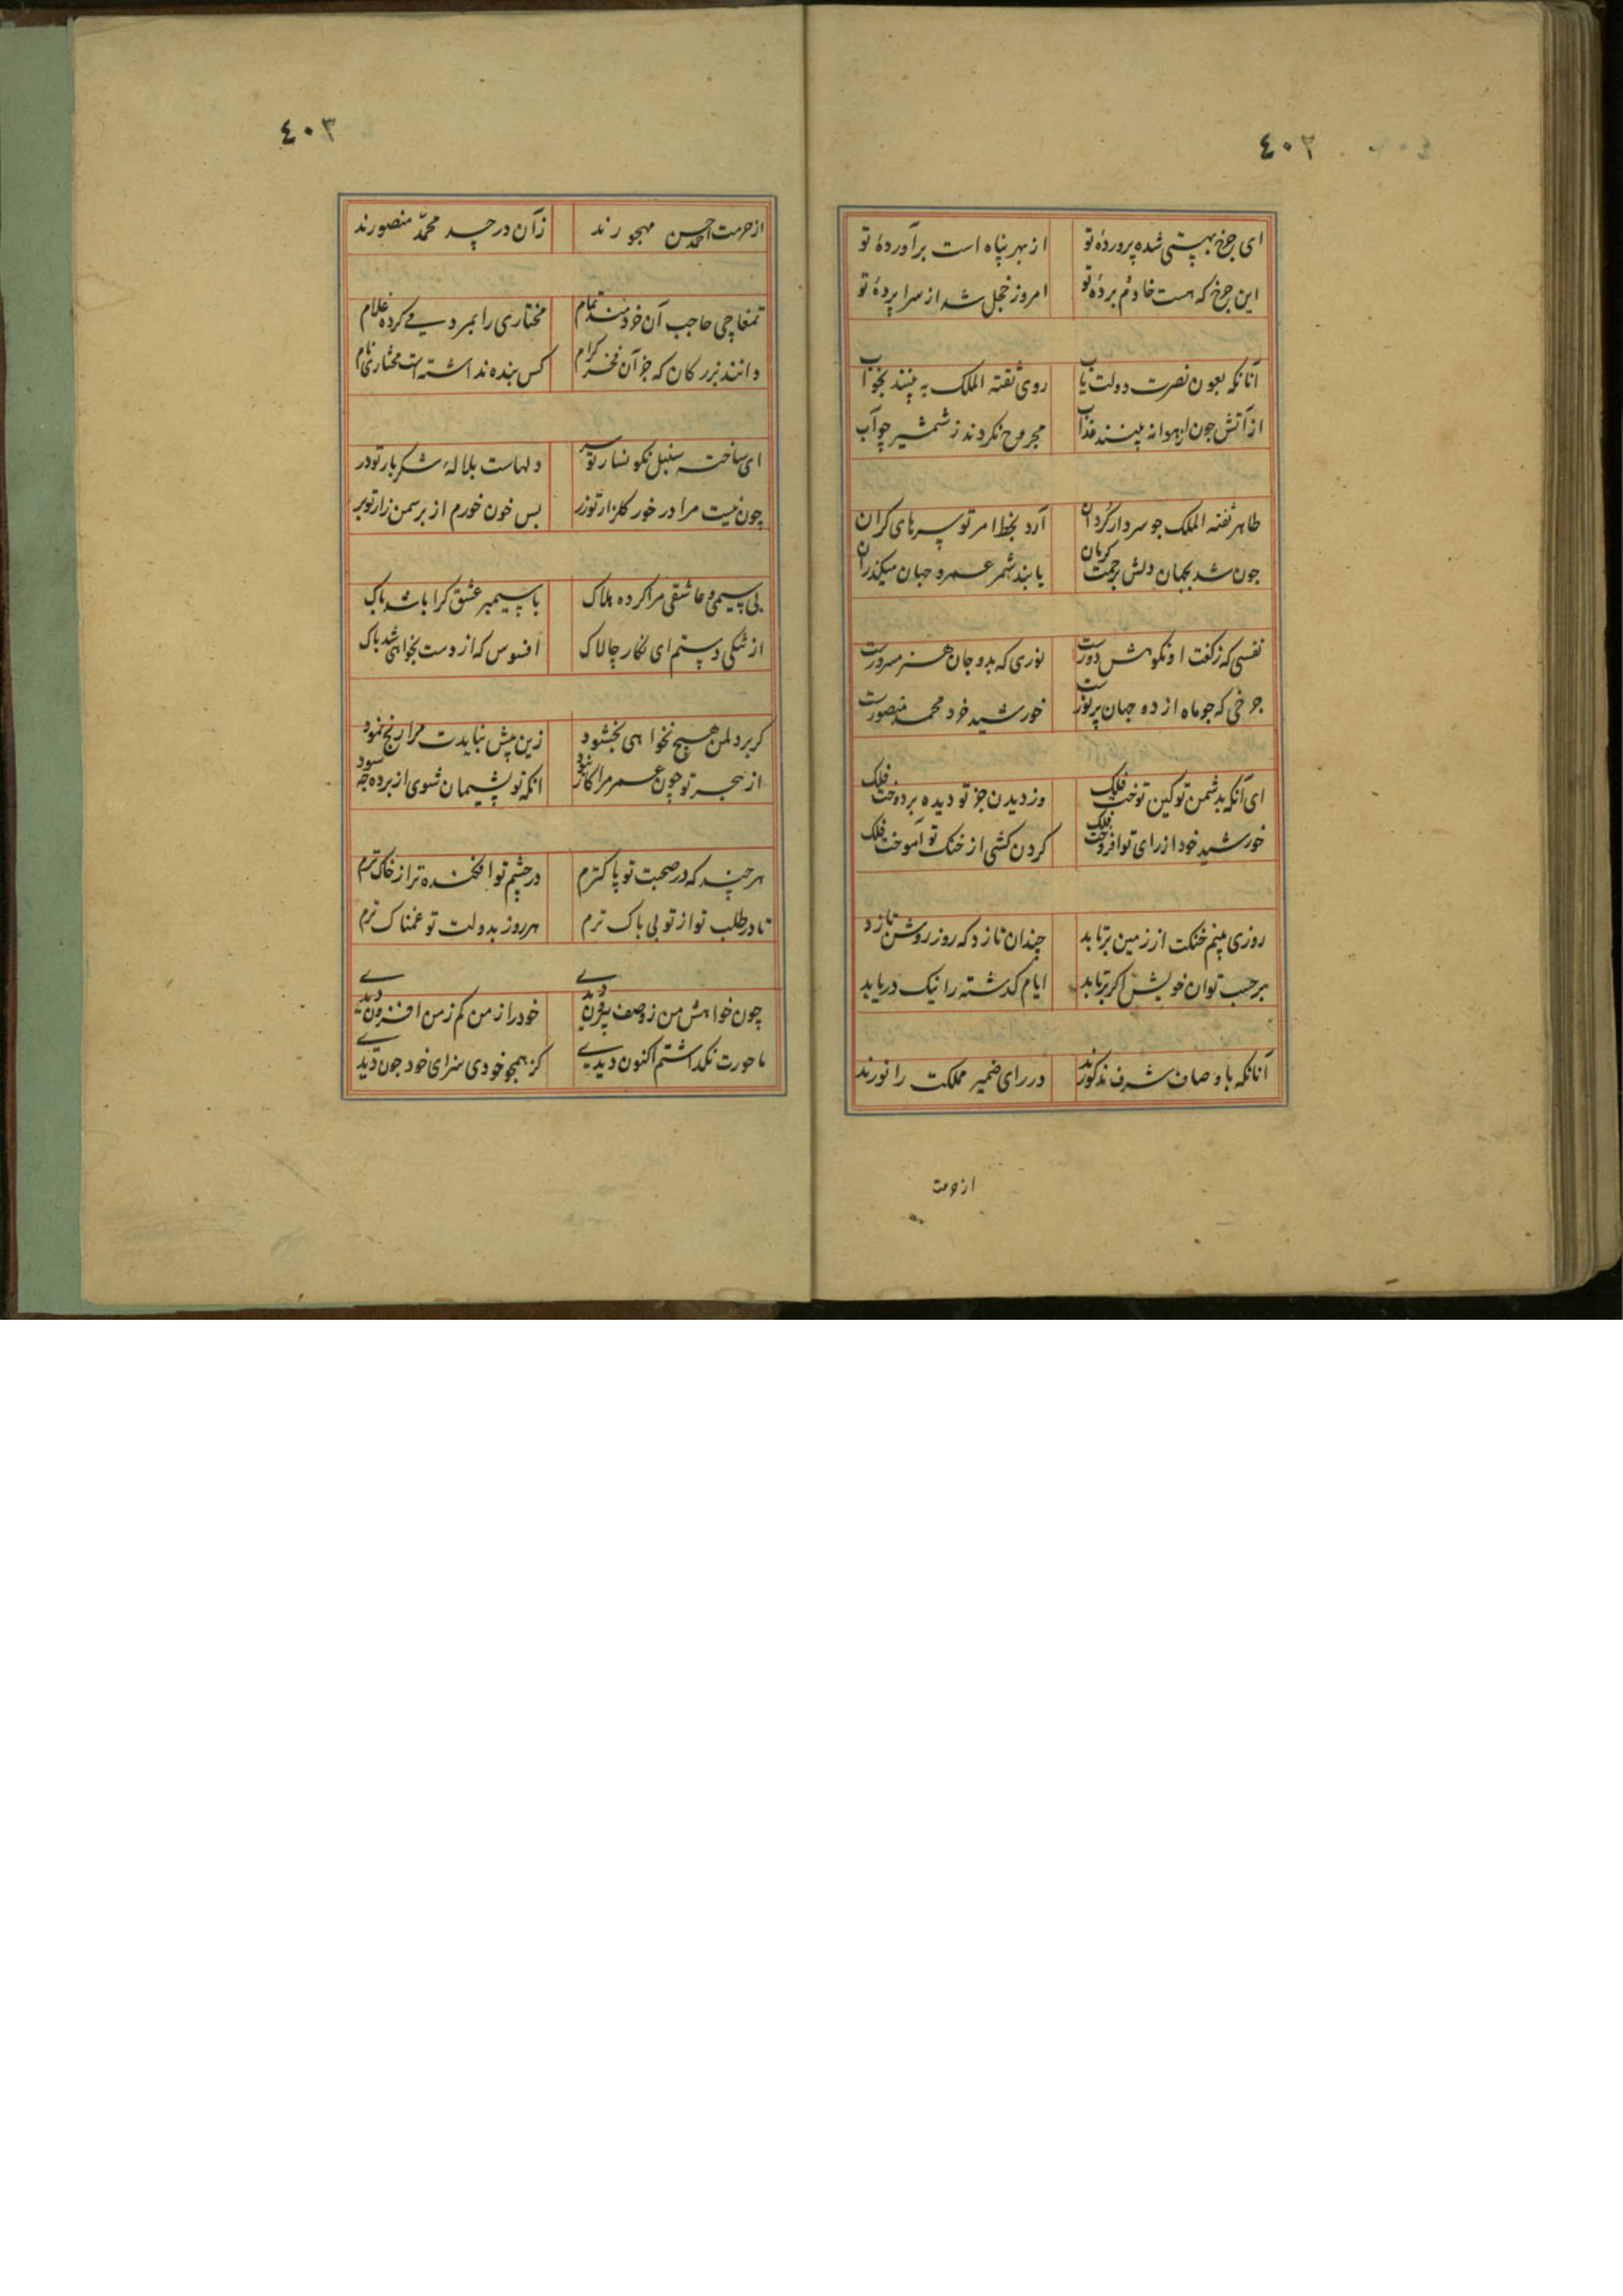 ٤٠٢
ای چرخ بپستی شده پروردهٔ تو از بهر پناه است برآوردهٔ تو
این چرخ که هست خادم بردهٔ تو امروز خجل شد از سراپردهٔ تو
آنانکه بعون نصرت دولت یاب روی ثقته الملک به بینند بخواب
از آتش چون ابهوانه بینند عذاب مجروح نکردند ز شمشیر چو آب
طاهر ثقته الملک جو سردار کردان آرد بخط امر تو سرهای کران
جون شد بجهان دلش برحمت کریان یابند شمر عمر و جهان میکذران
نفسی که زکفت او نکوهش دورست نوری که بدو جان هنر مسرورست
چرخی که جو ماه از ده جهان پرنورست خورشید خرد محمد منصورست
ای آنکه بدشمن تو کین توخت فلک وز دیدن جز تو دیده بردوخت فلک
خورشید خود از رای تو افروخت فلک کردن کشی از خنک تو آموخت فلک
روزی بینم خنکت از زمین برتابد چندان تازد که روز روشن تازد
برحسب توان خویش اکر برتابد ایام کذشته را نیک دریابد
آنانکه باوصاف شرف مذکورند در رای ضمیر مملکت را نورند
از حرمت
٤٠٣
از حرمت احمد حسن مهجورند زآن در چد محمّد منصورند
تمغاچی حاجب آن خردمند تمام مختاری را بمردمے کرده غلام
دانند بزرکان که جز آن فخر کرام کس بنده نداشته است مختاری نام
ای ساخته سنبل نکونسار تو سر دلهاست بلالهٔ شکربار تو در
چون نیست مرا در خور کلزار تو زر بس خون خورم از بر سمن زار تو بر
بی سیمی و عاشقی مرا کرده هلاک با سیمبر عشق کرا باشد باک
از تنکی دستم ای نکار چالاک افسوس که از دست بخواهی شد پاک
کر بر دلمن هیچ نخواهی بخشود زین پیش نبایدت مرا رنج نمود
از هجر تو چون عمر مرا کار نبود انکه تو پشیمان شوی از برده چه سود
هرچند که در صحبت تو پاکترم در چشم تو افکنده تر از خاک ترم
تا در طلب تو از تو بی باک ترم هر روز بدولت تو غمناک ترم
چون خواهش من ز وصف بیرون دیدے خود را ز من کم ز من افزون دیدے
ماحورت نکداشتم اکنون دیدے کز همچو خودی سزای خود چون دیدے